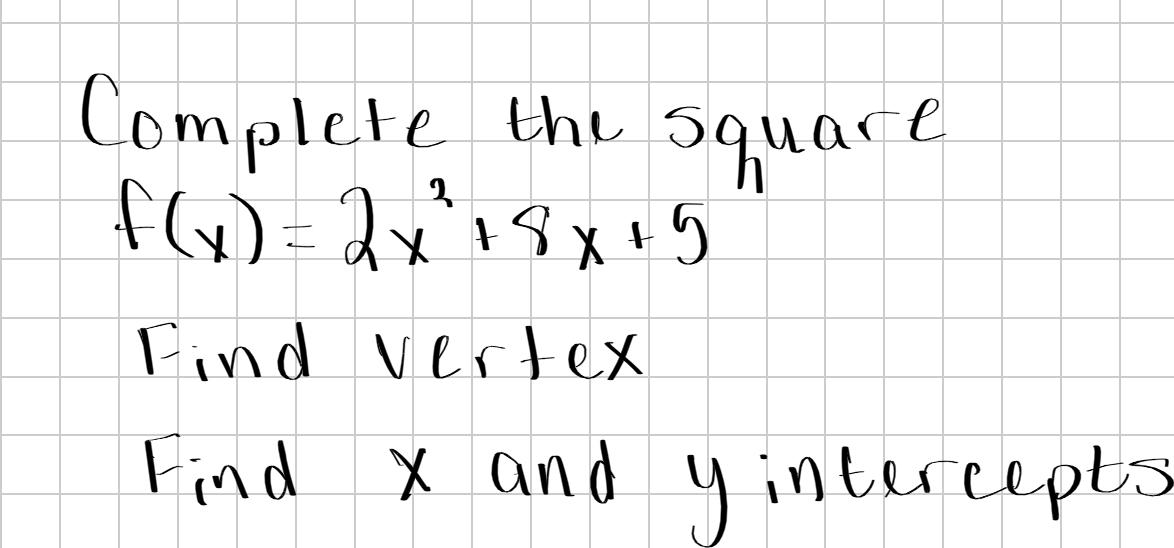 Complete the square
f(x) = 2x² + 8x + 5
Find vertex
Find x and y intercepts